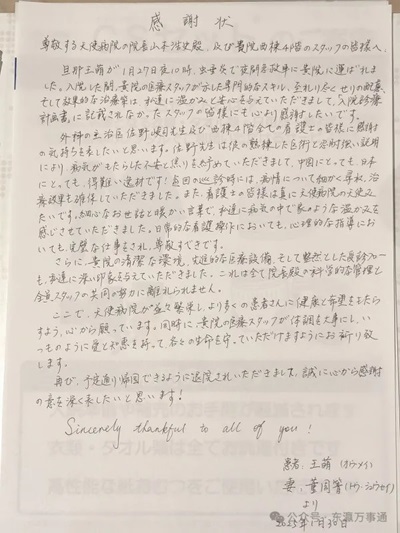 感謝状
尊敬する天使病院の院長山本浩史殿、及び貴院西棟4階のスタッフの皆様へ、
旦那王萌が1月27日夜10時、虫垂炎で夜間急救車に貴院に運ばれました。
入院した間、貴院の医療スタッフが示した専門的なスキル、至れり尽くせりの配慮、
そして効果的な治療 は、私達に温かみと安心を与えていただきまして、入院診療
計画書に記載されなかったスタッフの皆様にも心より感謝したいです。
外科の主治医佐野峻司先生及び西棟4階全ての看護士の皆様に感謝
の気持ちを表したいと思います。佐野先生は彼の熟練した医術と忍耐強い説明
により、病気がもたらした不安と焦りを 
にとっても、得難い逸材です!毎回の巡診時には、病情について細かく尋ね、治
療効果も確保していただきました。また、看護士の皆様は真に天使病院の天使み
たいです。細心なお世話と暖かい言葉で、私達に病気の中で家のような温かみを
感じさせていただきました。日常的な看護操作においても、心理的な指導にお
いても、完璧な仕事をされ、尊敬すべきです。
さらに、貴院の清潔な環境、先進的な医療設備、そして整然とした受診フロー
も、私達に深い印象を与えていただきました。これは全て院長殿の科学的な管理と
全員スタッフの共同の努力に離れられません。
ここで、天使病院が益々繁栄し、より多くの患者さんに健康と希望をもたら
すよう、心から願っています。同時に、貴院の医療スタッフが体調を大事にし、い
つものように愛と知恵を持って、各々の生命を守っていただけますようにお祈り致
します。
再び、予定通り帰国できるように退院されいただきまして、誠に心から感謝
の意を深く表したいと思います!
Sincerely thankful to all of you!
患者:王萌(オウメイ)
妻:董
より
2025年1月30日
公众号·东瀛万事通